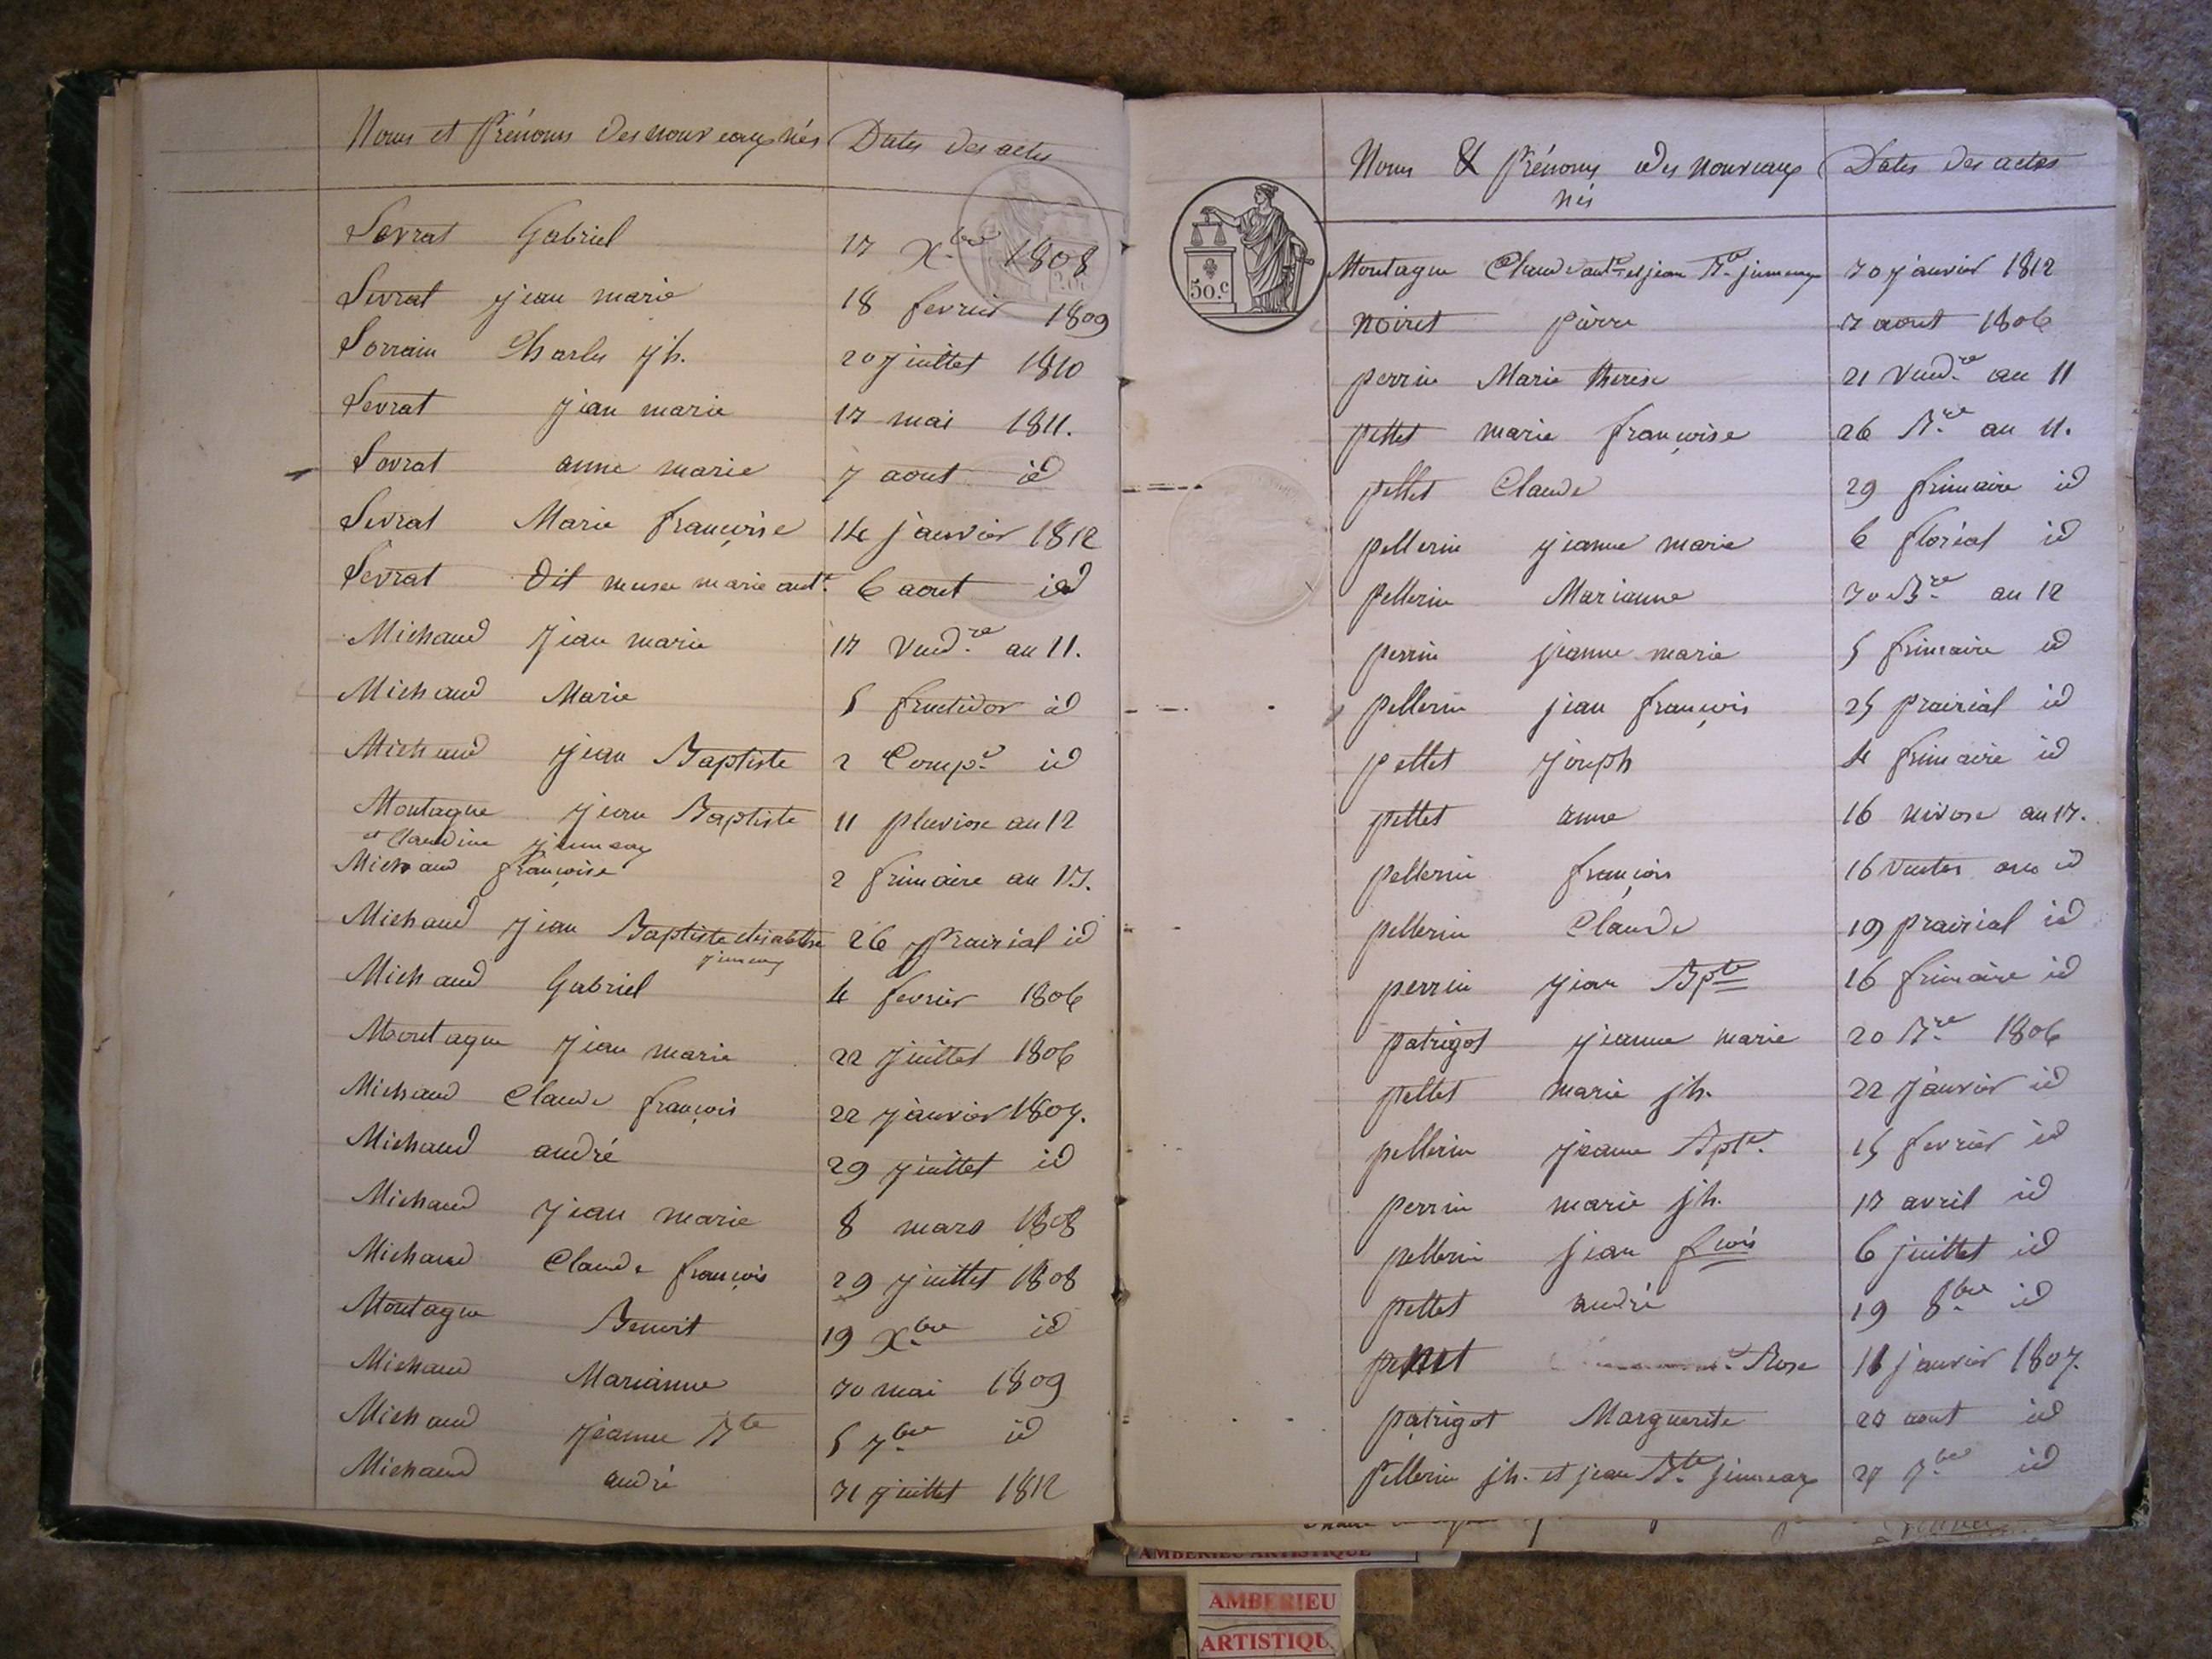 Noms et Prénoms des nouveaux nés Dates des actes
Sevrat Gabriel 17 Xbre 1808
Sevrat jean marie 18 fevrier 1809
Lorrain Charles jh. 20 juillet 1810
Sevrat jean marie 17 mai 1811.
Sevrat anne marie 7 aout id
Sevrat Marie françoise 14 janvier 1812
Sevrat dit marie antte 6 aout id
Michaud jean marie 17 Vendre an 11.
Michaud Marie 5 fructidor id
Michaud jean Baptiste 2 Compre id
Montagne jean Baptiste 11 pluviose an 12
et Claudine jumeaux
Michaud françoise 2 frimaire an 13.
Michaud jean Baptiste 26 prairial id
jumeaux
Michaud Gabriel 4 fevrier 1806
Montagne jean marie 22 juillet 1806
Michaud Claude françois 22 janvier 1807.
Michaud andré 29 juillet id
Michaud jean marie 8 mars 1808
Michaud Claude françois 29 juillet 1808
Montagne Benoit 19 Xbre id
Michaud Marianne 30 mai 1809
Michaud jeanne Bte 5 7bre id
Michaud andré 31 juillet 1812
Noms & Prénoms des nouveaux Dates des actes
nés
50.c
Montagne Claude ante et jean Bte jumeaux 30 janvier 1812
Noiret pierre 17 aout 1806
perrin Marie therese 21 Vendre an 11
pettet marie françoise 26 Bre an 11.
pellet Claude 29 frimaire id
pellerin jeanne marie 6 floréal id
pellerin Marianne 30 Bre an 12
perrin jeanne marie 5 frimaire id
pellerin jean françois 25 prairial id
pettet joseph 4 frimaire id
pettet anne 16 nivose an 13.
pellerin françois 16 id
pellerin Claude 19 prairial id
perrin jean Bpte 16 frimaire id
patrigot jeanne marie 20 Bre 1806
pettet marie jh. 22 janvier id
pellerin jeanne Bpte. 15 fevrier id
perrin marie jh. 17 avril id
pellerin jean fcois 6 juillet id
pettet andré 19 8bre id
Rose 11 janvier 1807.
patrigot Marguerite 27 aout id
Pellerin jh. et jean Bte jumeaux 27 7bre id
AMBERIEU ARTISTIQUE
AMBERIEU
ARTISTIQU